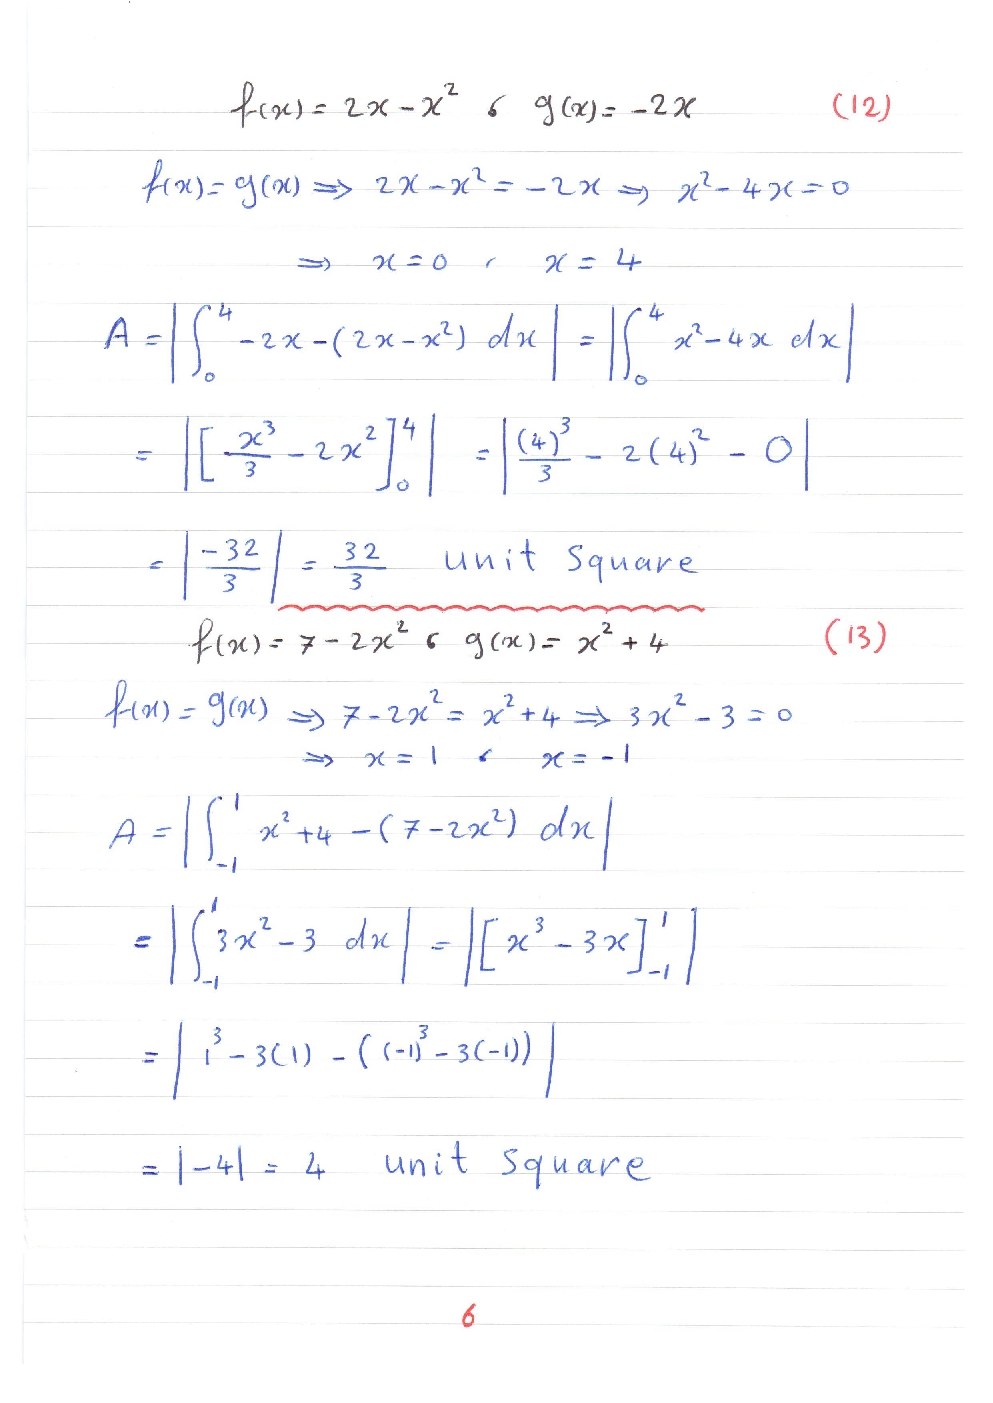 f(x) = 2x - x² ، g(x) = -2x (12)
f(x) = g(x) ⇒ 2x - x² = -2x ⇒ x² - 4x = 0
⇒ x = 0 ، x = 4
A = |∫₀⁴ -2x - (2x - x²) dx| = |∫₀⁴ x² - 4x dx|
= |[x³/3 - 2x²]₀⁴| = |(4)³/3 - 2(4)² - 0|
= |-32/3| = 32/3 unit square
f(x) = 7 - 2x² ، g(x) = x² + 4 (13)
f(x) = g(x) ⇒ 7 - 2x² = x² + 4 ⇒ 3x² - 3 = 0
⇒ x = 1 ، x = -1
A = |∫₋₁¹ x² + 4 - (7 - 2x²) dx|
= |∫₋₁¹ 3x² - 3 dx| = |[x³ - 3x]₋₁¹|
= |1³ - 3(1) - ((-1)³ - 3(-1))|
= |-4| = 4 unit square
6